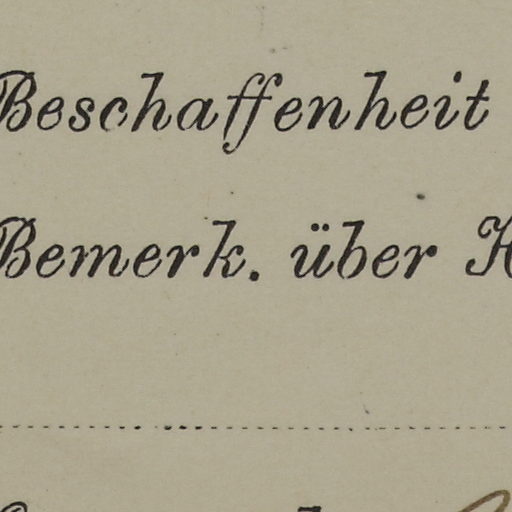 Beschaffenheit
Bemerk. über